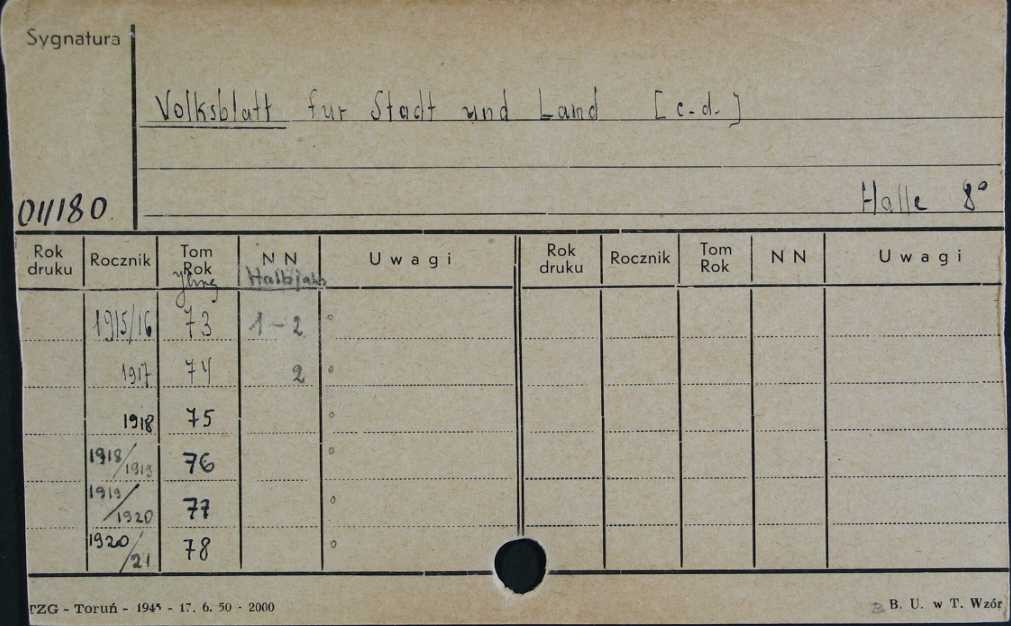 Sygnatura
Volksblatt für Stadt und Land [c.d.]
011180
Halle 8°
Rok druku Rocznik Tom Rok NN Uwagi Rok druku Rocznik Tom Rok NN Uwagi
Halbjahr
1915/16 73 1-2 °
1917 74 2 °
1918 75 °
1918/1919 76 °
1919/1920 77 °
1920/21 78 °
TZG - Toruń - 1945 - 17. 6. 50 - 2000
B. U. w T. Wzór